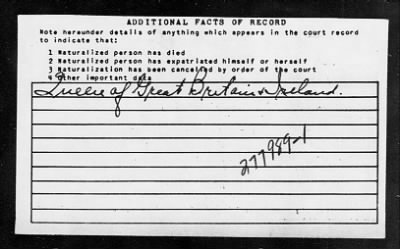 ADDITIONAL FACTS OF RECORD
Note hereunder details of anything which appears in the court record
to indicate that:
1 Naturalized person has died
2 Naturalized person has expatriated himself or herself
3 Naturalization has been canceled by order of the court
4 Other important data
Queen of Great Britain & Ireland.
277989-1